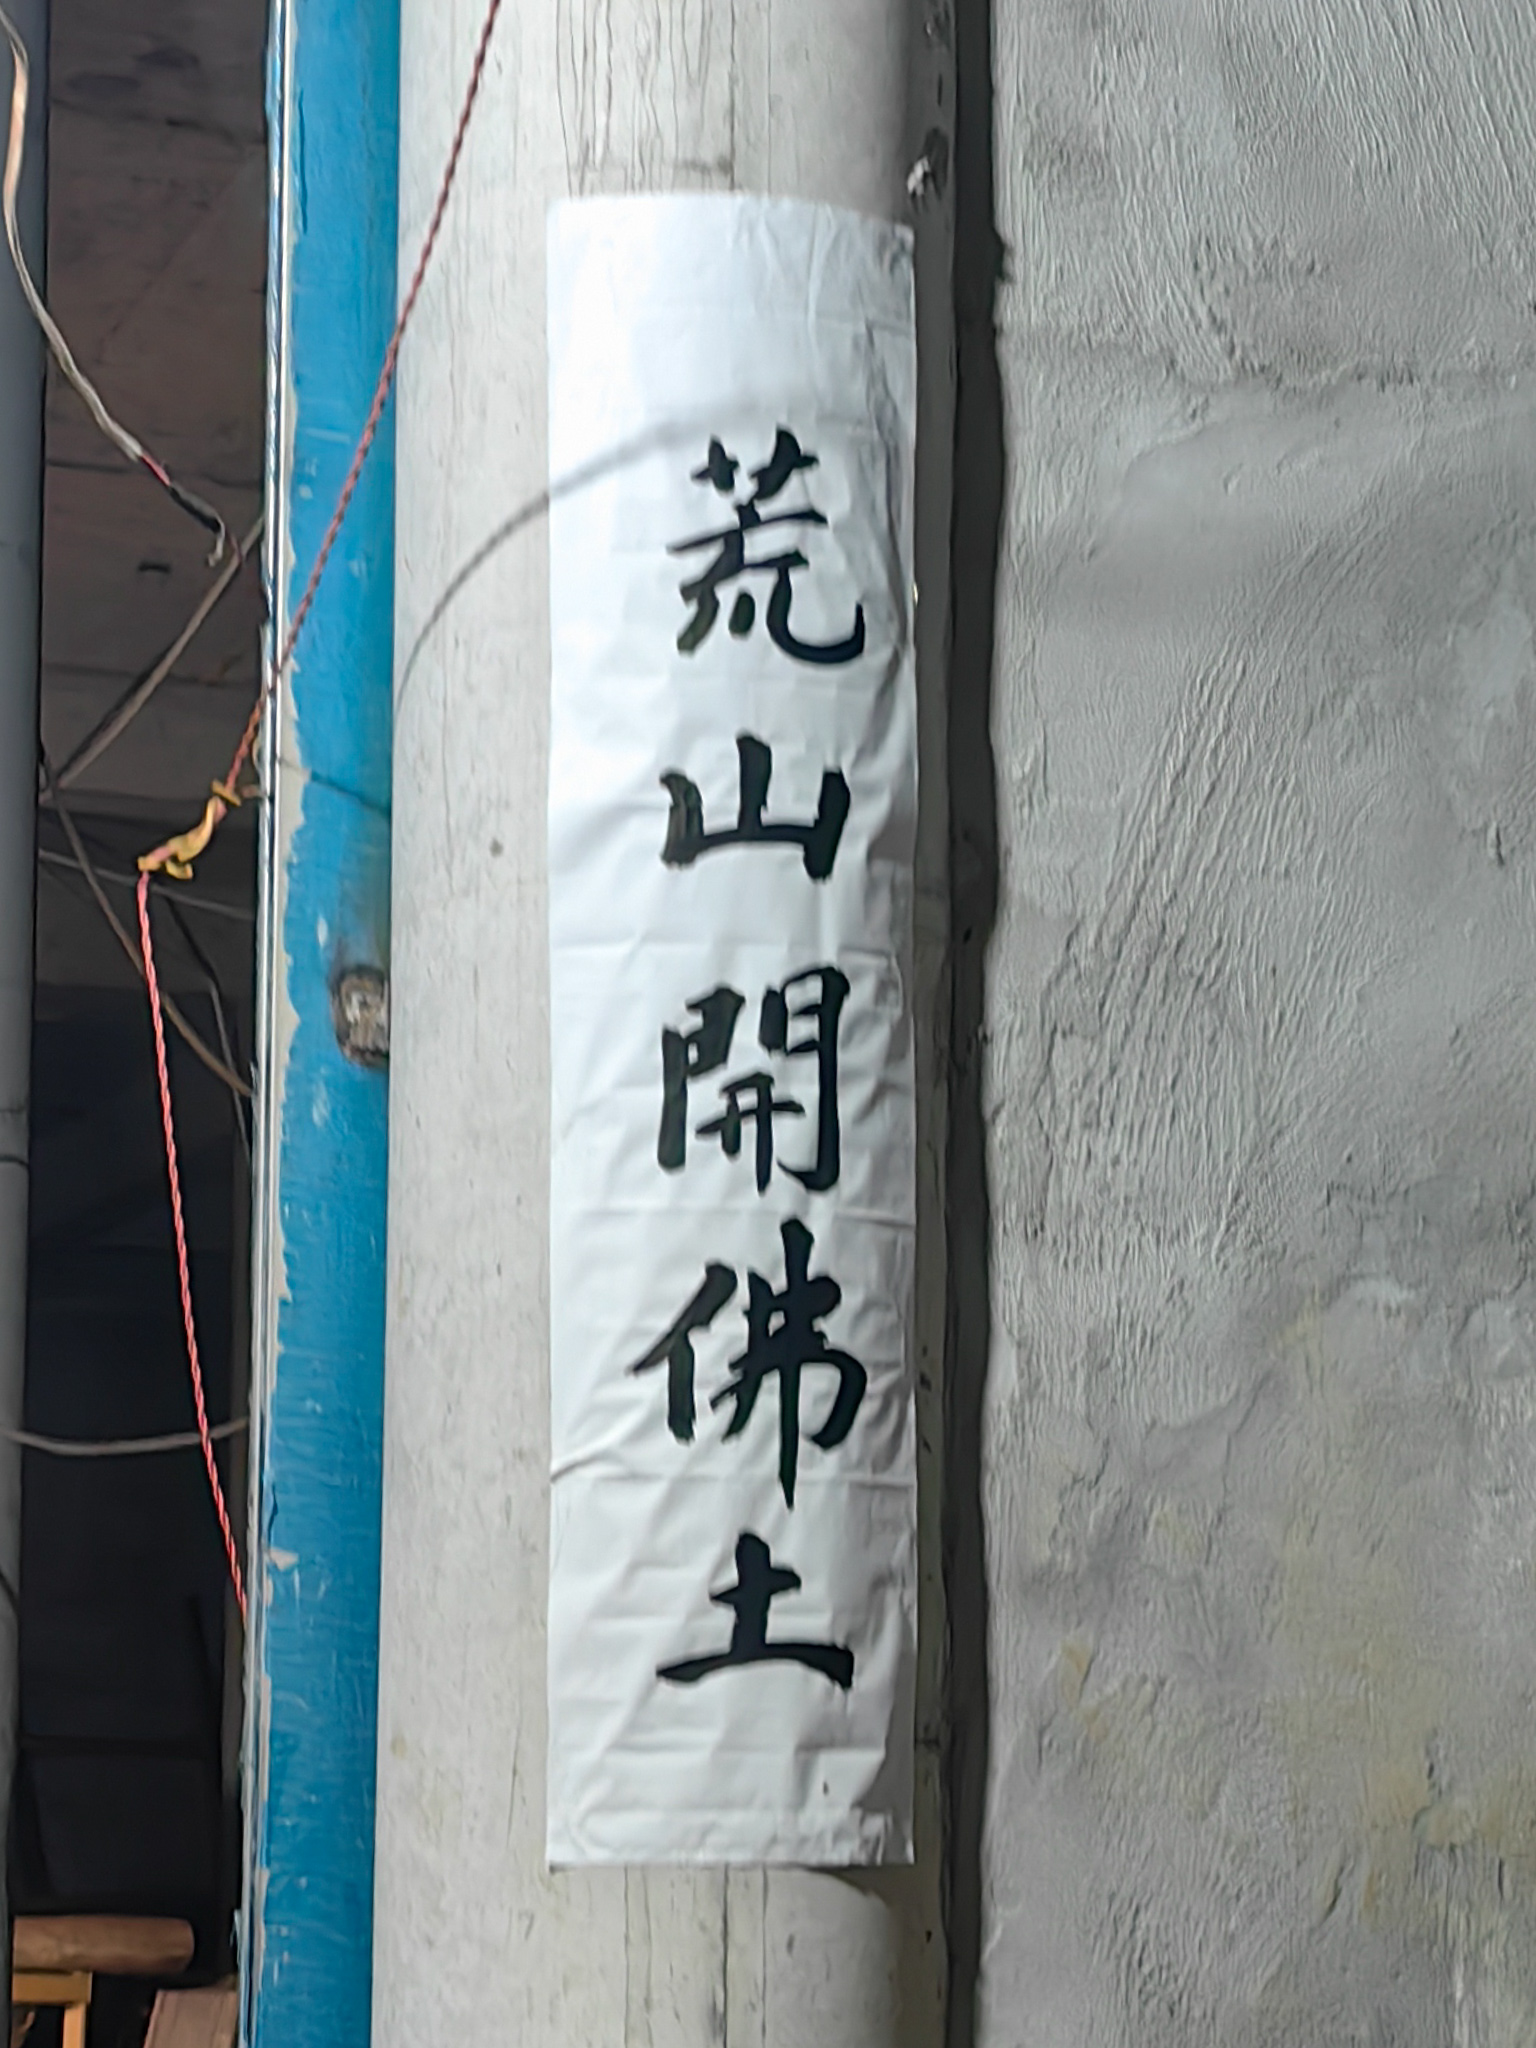 荒山開佛土